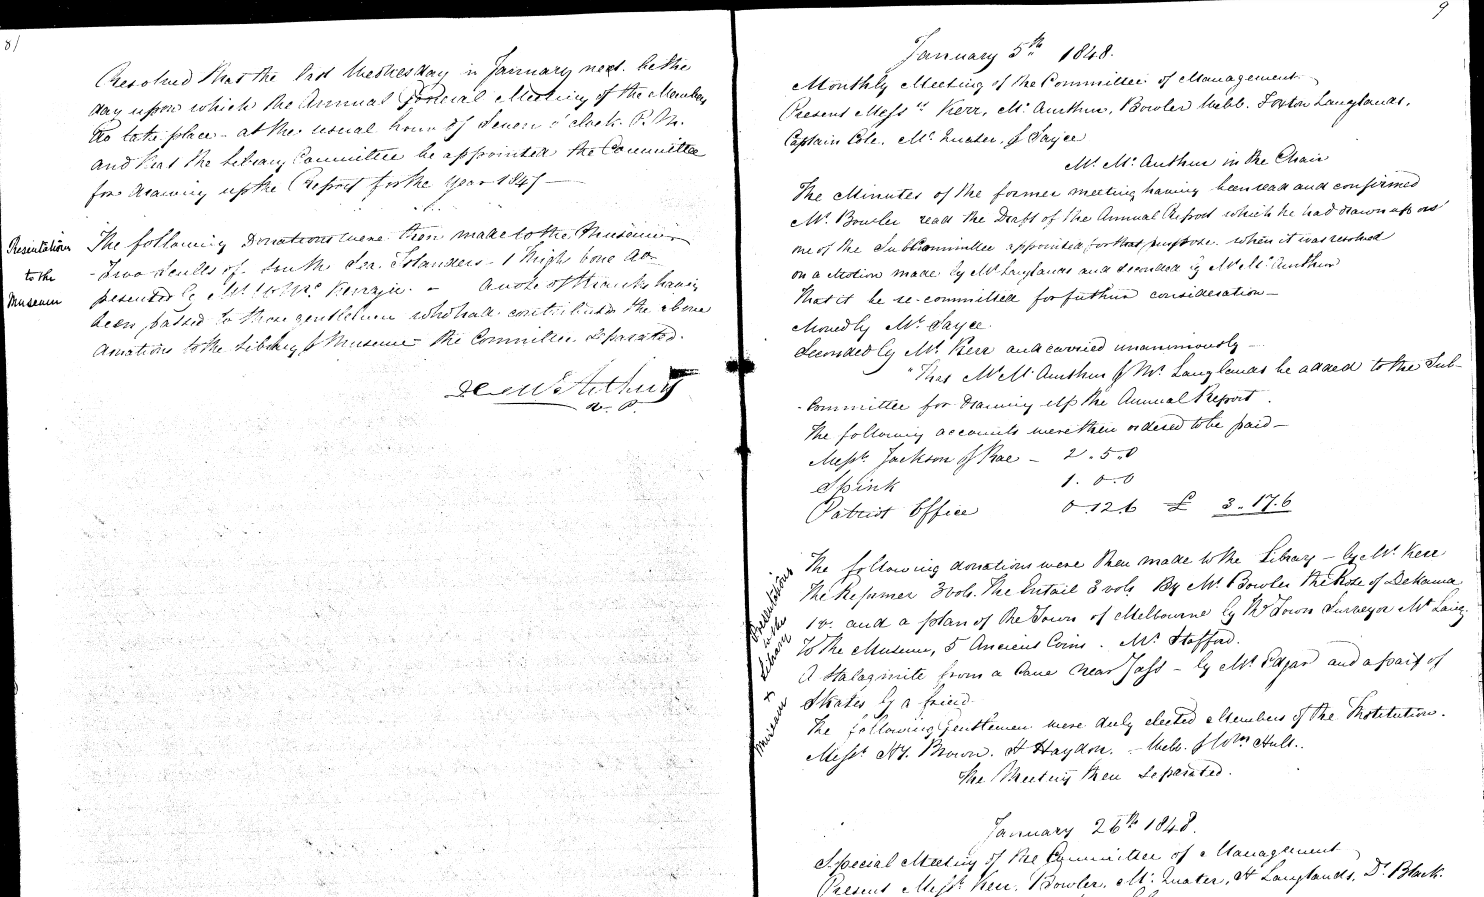 8/
Resolved that the last Wednesday in January next be the
day upon which the Annual General Meeting of the Members
do take place - at the usual hour of Seven o'clock P.M.
and that the Library Committee be appointed the Committee
for drawing up the Report for the Year 1847 —
Presentations
to the
Museum
The following Donations were then made to the Museum
- Two Sculls of South Sea Islanders - 1 thigh bone do -
presented by Mr - A vote of thanks having
been passed to those gentlemen who had contributed the above
donations to the Library & Museum - the Committee separated.
McArthur
V. P.
9
January 5th 1848.
Monthly Meeting of the Committee of Management
Present Messrs Kerr, Mc Aurthur, Bowler Webb. Foxton Langlands,
Captain Cole, Mc Quater, & Sayce
Mr. Mc Aurthur in the Chair
The Minutes of the former meeting having been read and confirmed
Mr. Bowler read the Draft of the Annual Report which he had drawn up as
one of the Sub Committee appointed for that purpose. when it was resolved
on a Motion made by Mr Langlands and seconded by Mr Mc Aurthur
That it be re-committed for further consideration —
Moved by Mr. Sayce
Seconded by Mr. Kerr and carried unanimously —
"That Mr Mc Aurthur & Mr. Langlands be added to the Sub-
- Committee for Drawing Up the Annual Report.
The following accounts were then ordered to be paid —
Messrs. Jackson & Rae — 2. 5. 0
Spink 1. 0. 0
Patriot Office 0. 12. 6 £ 3. 17. 6
Presentations
to the
Library
&
Museum
The following donations were then made to the Library — by Mr. Kerr
The 3 vols. The Entail 3 vols. By Mr Bowler the Rose of Dekama
1 v. and a plan of the Town of Melbourne by the Town Surveyor Mr Laing.
To the Museum, 5 Ancient Coins. Mr. Stafford.
A Stalagmite from a Cave near Yass — by Mr. Edgar and a pair of
Skates by a friend.
The following gentlemen were duly elected Members of the Institution.
Messrs. H.Y. Brown. H Haydon. - Webb. & Wm Hull.
The Meeting then separated.
January 26th 1848.
Special Meeting of the Committee of Management
Present Messrs. Kerr. Bowler, Mc Quater, H Langlands, Dr. Black.